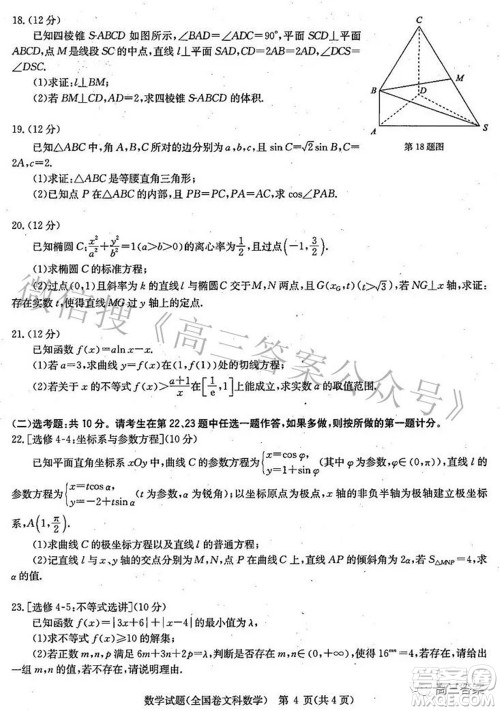 18.(12分)
已知四棱锥S-ABCD如图所示,∠BAD=∠ADC=∠SDC=90°,平面SCD⊥平面
ABCD,点M是线段SC的中点,直线l⊥平面SAD,CD=2AB,CD=2AD,∠DCS=
∠DSC.
(1)求证:l⊥BM;
(2)若BM⊥CD,AD=2,求四棱锥S-ABCD的体积.
C
B
M
D
A
S
第18题图
19.(12分)
已知△ABC中,角A,B,C所对的边分别为a,b,c,且sinC=√2sinB,C=
2A,c=2.
(1)求证:△ABC是等腰直角三角形;
(2)已知点P在△ABC的内部,且PB,PC,PA成等差数列,求cos∠PAB.
20.(12分)
已知椭圆C:x²/a²+y²/b²=1(a>b>0)的离心率为1/2,且过点(-1,3/2).
(1)求椭圆C的标准方程;
(2)过点(0,1)且斜率为k的直线l与椭圆C交于M,N两点,G(x_G,t)(t>√3),若NG∥x轴,求证:
存在实数t,使得直线MG过y轴上的定点.
21.(12分)
已知函数f(x)=alnx-x.
(1)若a=3,求曲线y=f(x)在(1,f(1))处的切线方程;
(2)若关于x的不等式f(x)>(a+1)/x在[1/e,1]上能成立,求实数a的取值范围.
(二)选考题:共10分。请考生在第22、23题中任选一题作答,如果多做,则按所做的第一题计分。
22.[选修4-4:坐标系与参数方程](10分)
已知平面直角坐标系xOy中,曲线C:{x=cosφ, y=1+sinφ}(其中φ为参数),直线l:
{x=tcosα, y=-2+tsinα}(t为参数,α为锐角);以坐标原点O为极点,x轴的非负半轴为极轴建立极坐标系,
A(1,π/2).
(1)求曲线C的极坐标方程以及直线l的普通方程;
(2)记直线l与x,y轴的交点分别为M,N,点P在曲线C上,直线AP的倾斜角为2α,若S△MNP=4,求
α的值.
23.[选修4-5:不等式选讲](10分)
已知函数f(x)=|3x+6|+|3x-4|的最小值为λ.
(1)求不等式f(x)≥10的解集;
(2)若正数m,n满足m+n=λ,判断是否存在m,n,使得16^mn=4成立,若存在,求出m,n的值,若不存在,
请说明理由.
数学试题(全国卷文科数学) 第4页(共4页)
微信搜《高三答案公众号》
高三答案